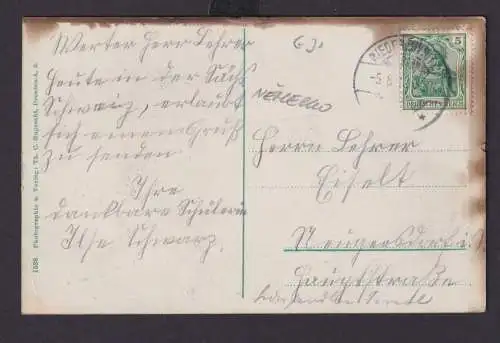 Werter Herr Lehrer
Heute in der Sächs.
Schweiz, erlaubt
sich einen Gruß
zu senden
Ihre
dankbare Schülerin
Ilse Schwarz.
1588 Photographie u. Verlag: Th. C. Ruprecht, Dresden-A. 9.
5
DEUTSCHES REICH
Herrn Lehrer
Eiselt
Neugersdorf i. S.
Hauptstraße